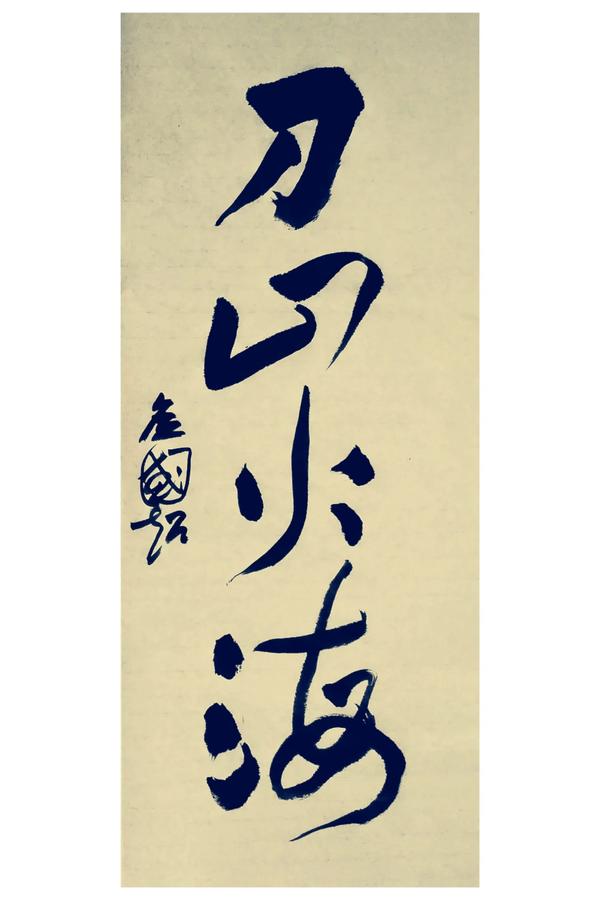 刀山火海
金國超